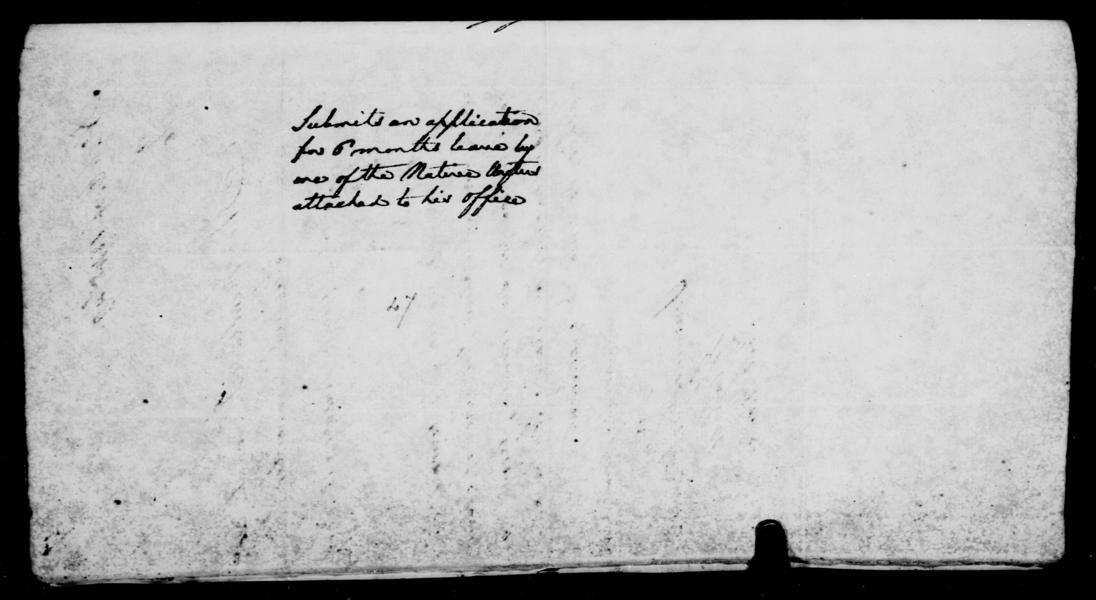 Submits an application
for 6 months leave by
one of the Native
attached to his office
47